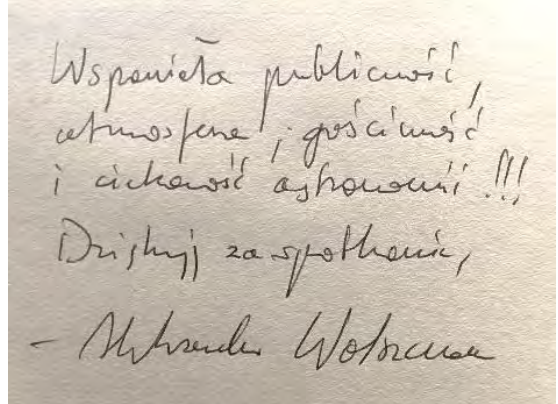 Wspaniała publiczność,
atmosfera, gościnność
i ciekawość astronomii!!!
Dziękuję za spotkanie,
- Aleksander Wolszczan